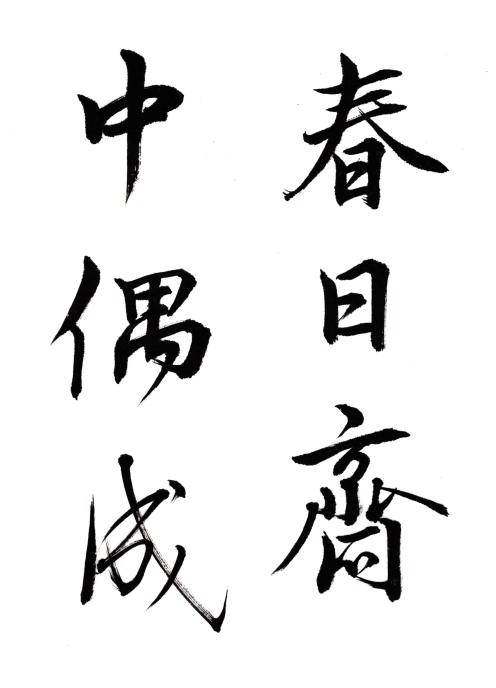 春日齋
中偶成